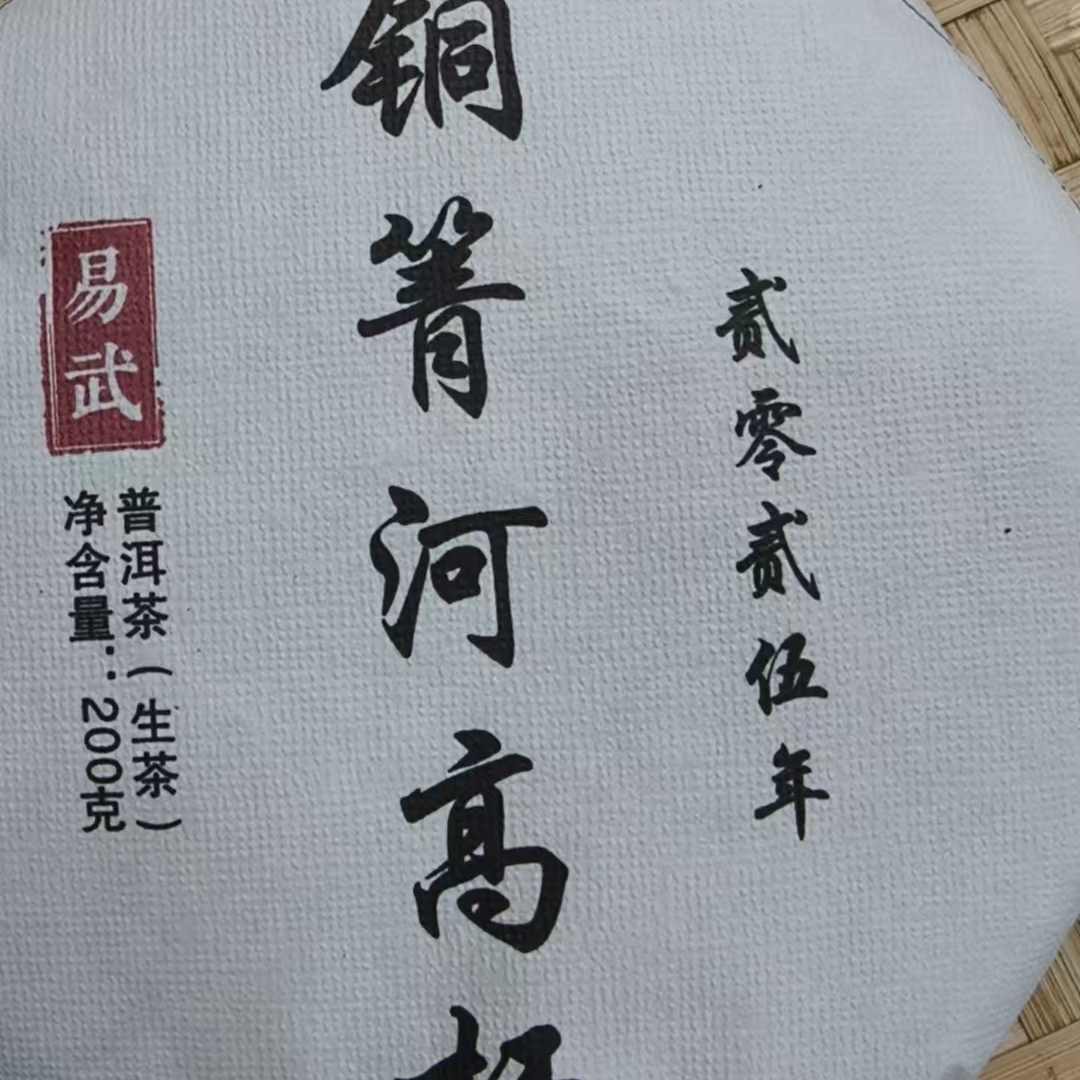 贰零贰伍年
铜箐河高
易武
普洱茶（生茶）
净含量：200克